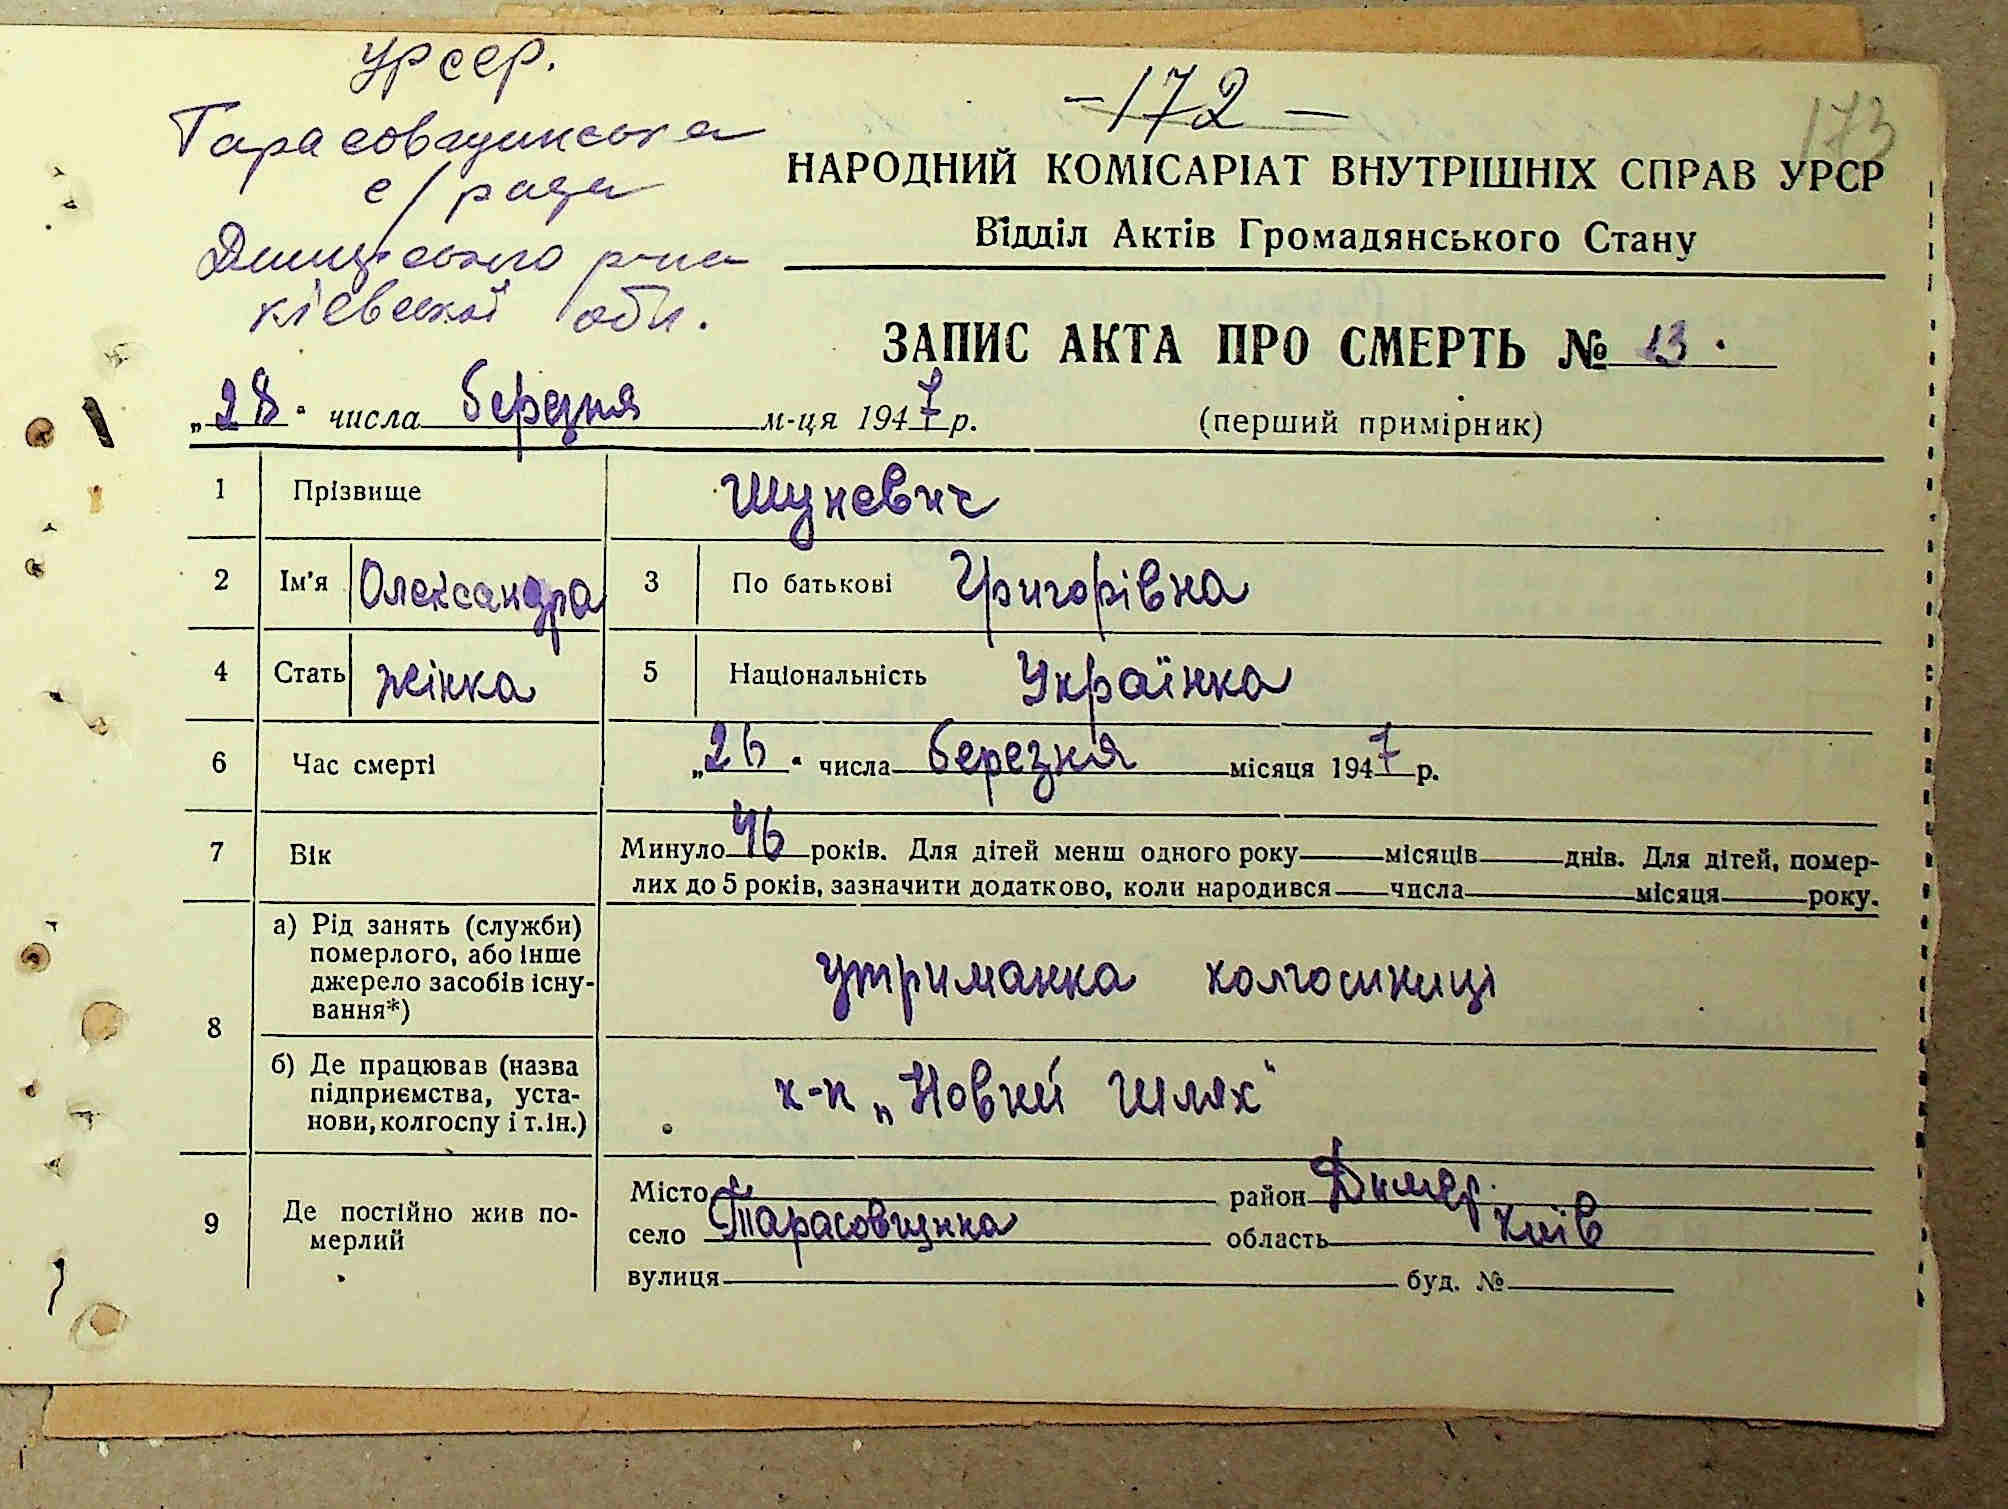 УРСР.
Тарасовщинська
с/рада
Димерського р-на
Київської обл.
-172-
173
НАРОДНИЙ КОМІСАРІАТ ВНУТРІШНІХ СПРАВ УРСР
Відділ Актів Громадянського Стану
ЗАПИС АКТА ПРО СМЕРТЬ № 13.
„28" числа березня м-ця 1947 р.
(перший примірник)
1 Прізвище Шуневич
2 Ім'я Олександра 3 По батькові Григорівна
4 Стать жінка 5 Національність Українка
6 Час смерті „26" числа березня місяця 1947 р.
7 Вік Минуло 46 років. Для дітей менш одного року місяців днів. Для дітей, помер-
лих до 5 років, зазначити додатково, коли народився числа місяця року.
8 а) Рід занять (служби)
померлого, або інше
джерело засобів існу-
вання*)
утриманка колгоспниці
б) Де працював (назва
підприємства, уста-
нови, колгоспу і т.ін.)
к-п „Новий шлях"
9 Де постійно жив по-
мерлий
Місто район Димер.
село Тарасовщина область Київ
вулиця буд. №